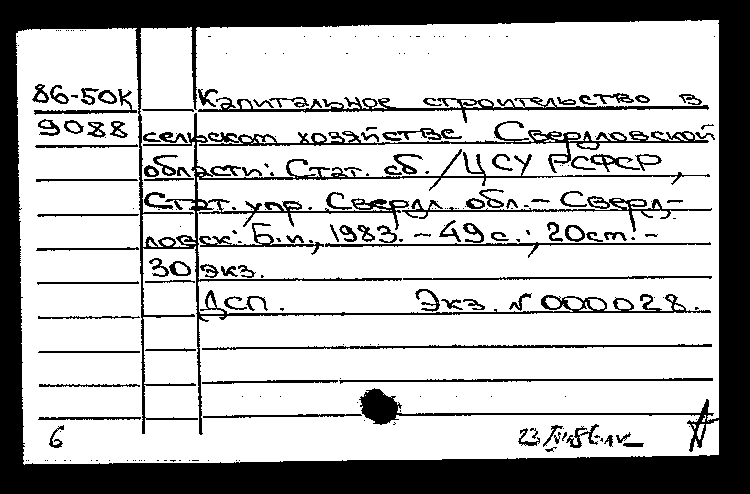 86-50К Капитальное строительство в
9088 сельском хозяйстве Свердловской
области: Стат. сб. / ЦСУ РСФСР,
Стат. упр. Свердл. обл. - Сверд-
ловск: Б.и., 1983. - 49 с.; 20 см. -
30 экз.
ДСП. Экз. № 000028.
6 23